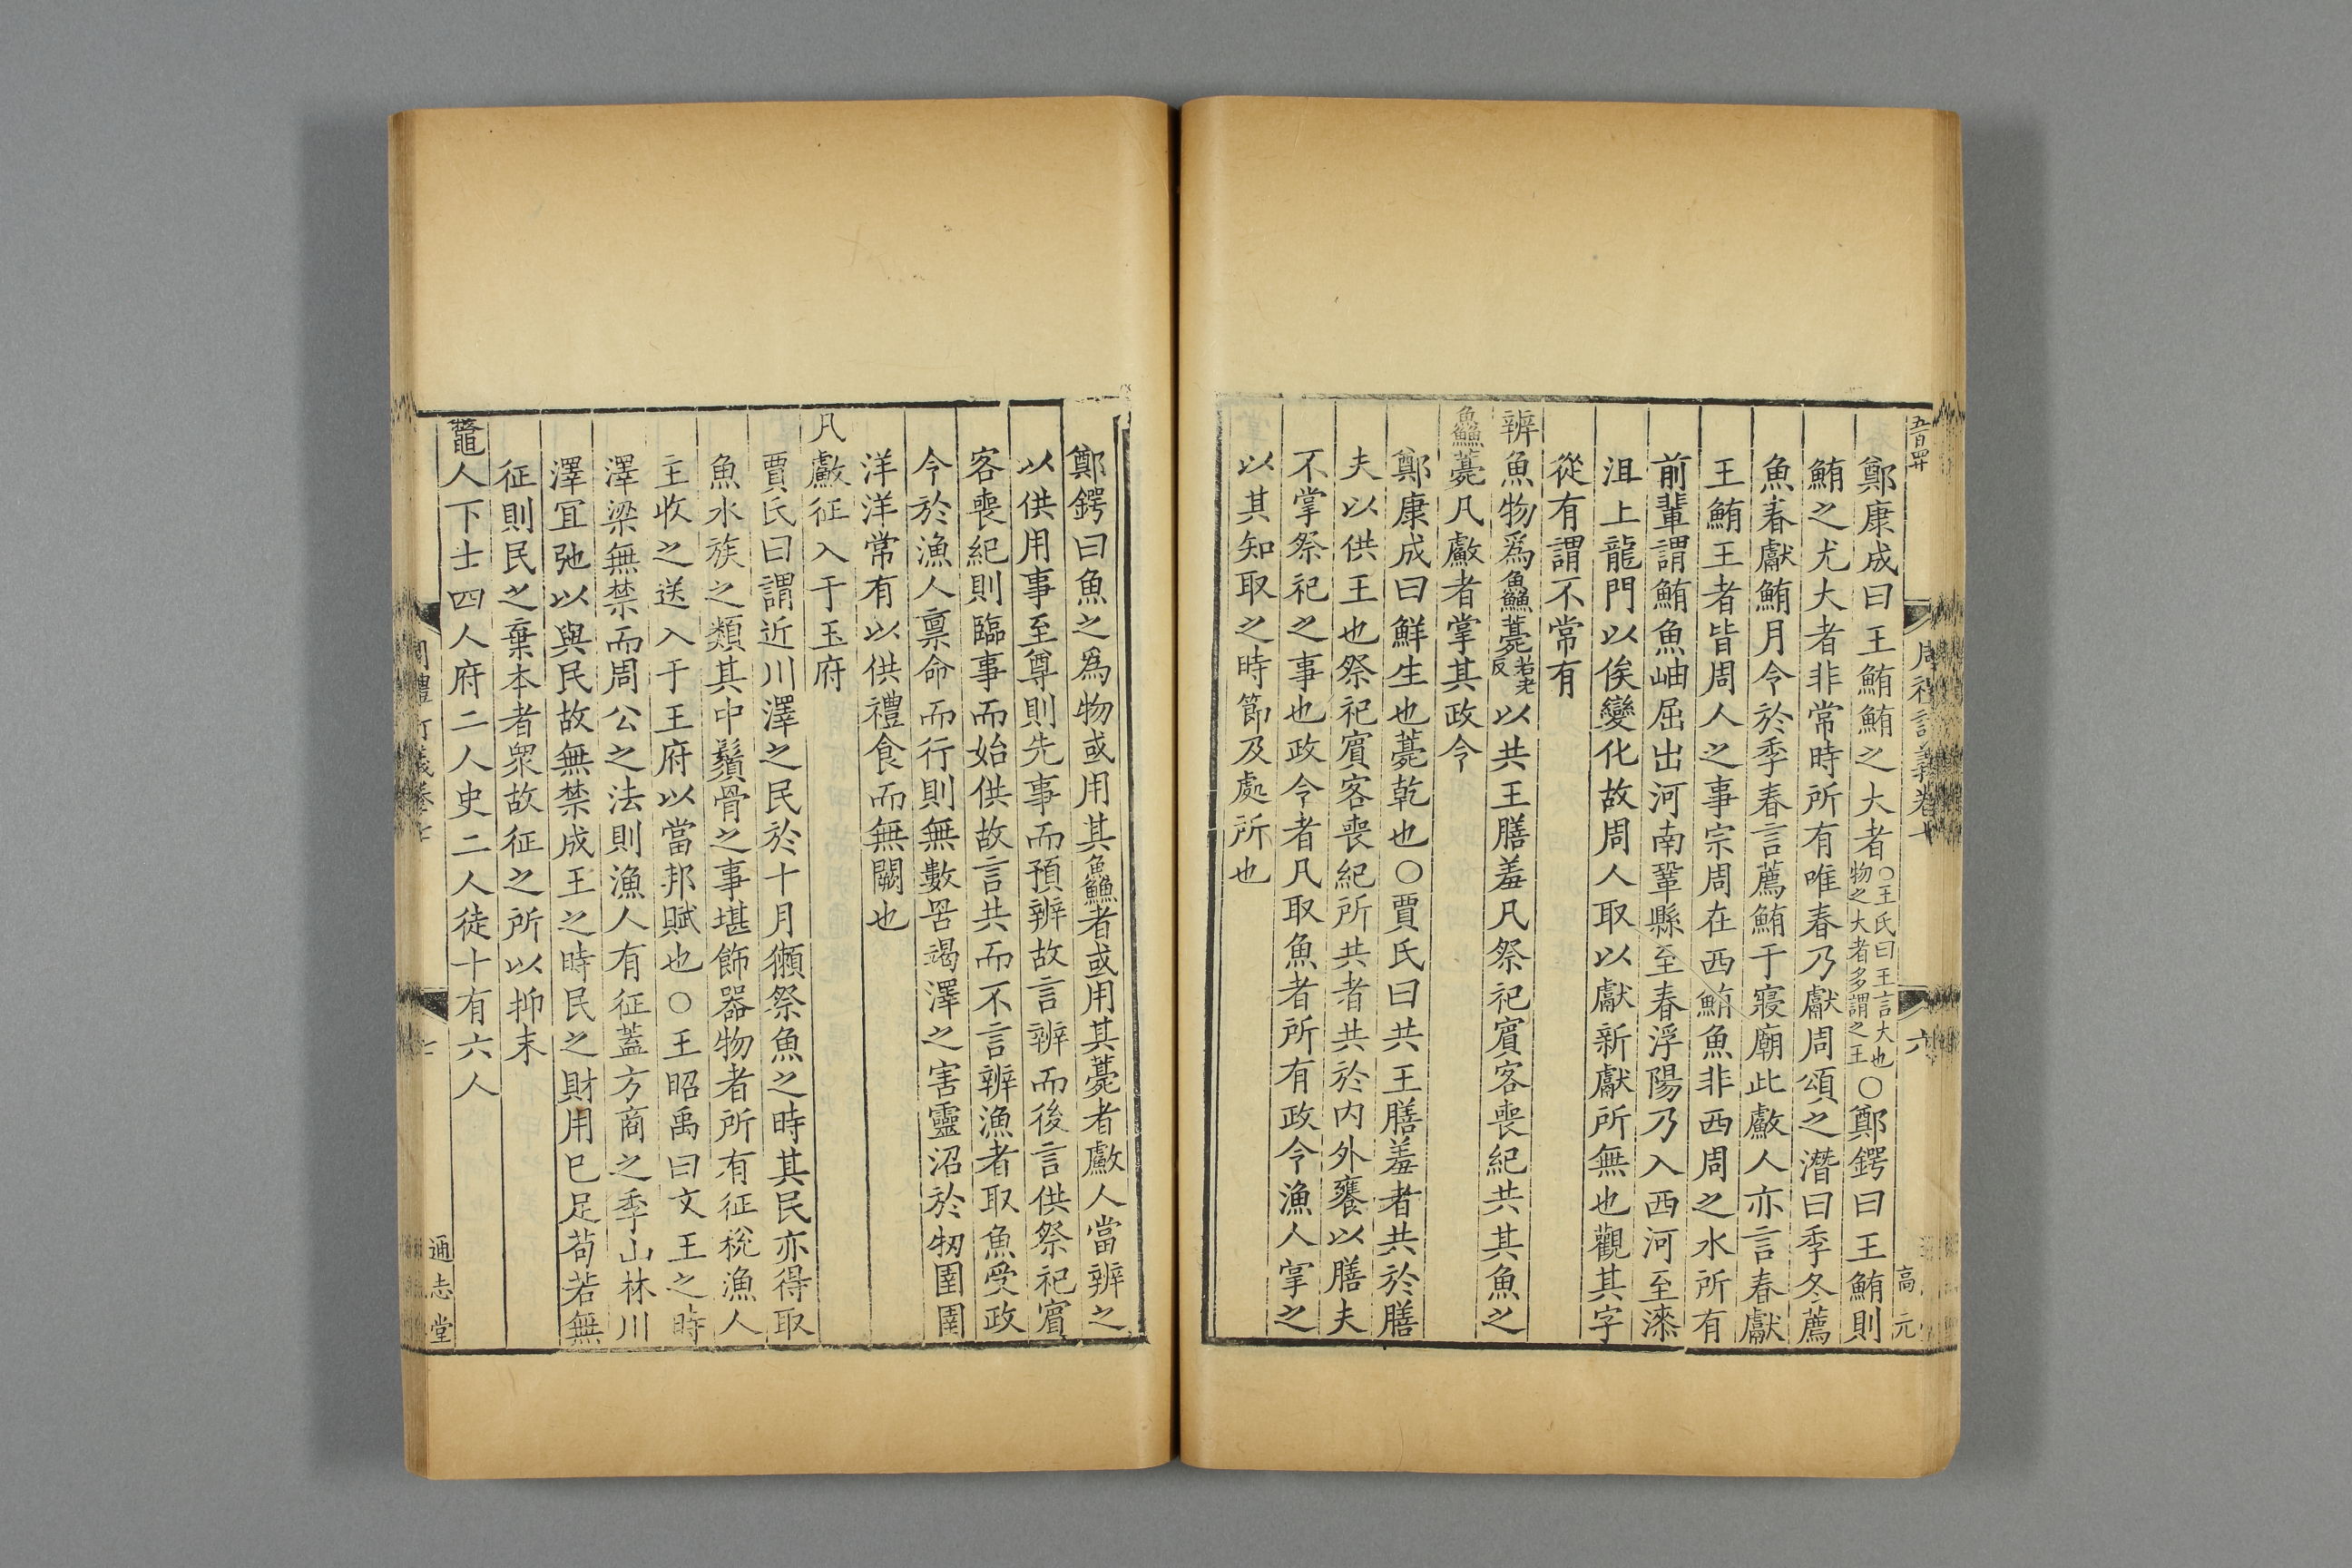 五百四
鄭康成曰王鮪鮪之大者○王氏曰王言大也物之大者多謂之王○鄭鍔曰王鮪則
鮪之尤大者非常時所有唯春乃獻周頌之潛曰季冬薦
魚春獻鮪月令於季春言薦鮪于寢廟此䱷人亦言春獻
王鮪王者皆周人之事宗周在西鮪魚非西周之水所有
前輩謂鮪魚岫屈出河南鞏縣至春浮陽乃入西河至漆
沮上龍門以俟變化故周人取以獻新獻所無也觀其字
從有謂不常有
辨魚物爲鱻薧苦老反以共王膳羞凡祭祀賓客喪紀共其魚之
鱻薧凡䱷者掌其政令
鄭康成曰鮮生也薧乾也○賈氏曰共王膳羞者共於膳
夫以供王也祭祀賓客喪紀所共者共於內外饔以膳夫
不掌祭祀之事也政令者凡取魚者所有政令漁人掌之
以其知取之時節及處所也
六
高元
鄭鍔曰魚之爲物或用其鱻者或用其薧者䱷人當辨之
以供用事至尊則先事而預辨故言辨而後言供祭祀賓
客喪紀則臨事而始供故言共而不言辨漁者取魚受政
令於漁人稟命而行則無數罟竭澤之害靈沼於牣圉圉
洋洋常有以供禮食而無闕也
凡䱷征入于玉府
賈氏曰謂近川澤之民於十月獺祭魚之時其民亦得取
魚水族之類其中鬚骨之事堪飾器物者所有征稅漁人
主收之送入于王府以當邦賦也○王昭禹曰文王之時
澤梁無禁而周公之法則漁人有征蓋方商之季山林川
澤宜弛以與民故無禁成王之時民之財用已足苟若無
征則民之棄本者衆故征之所以抑末
鼈人下士四人府二人史二人徒十有六人
通志堂